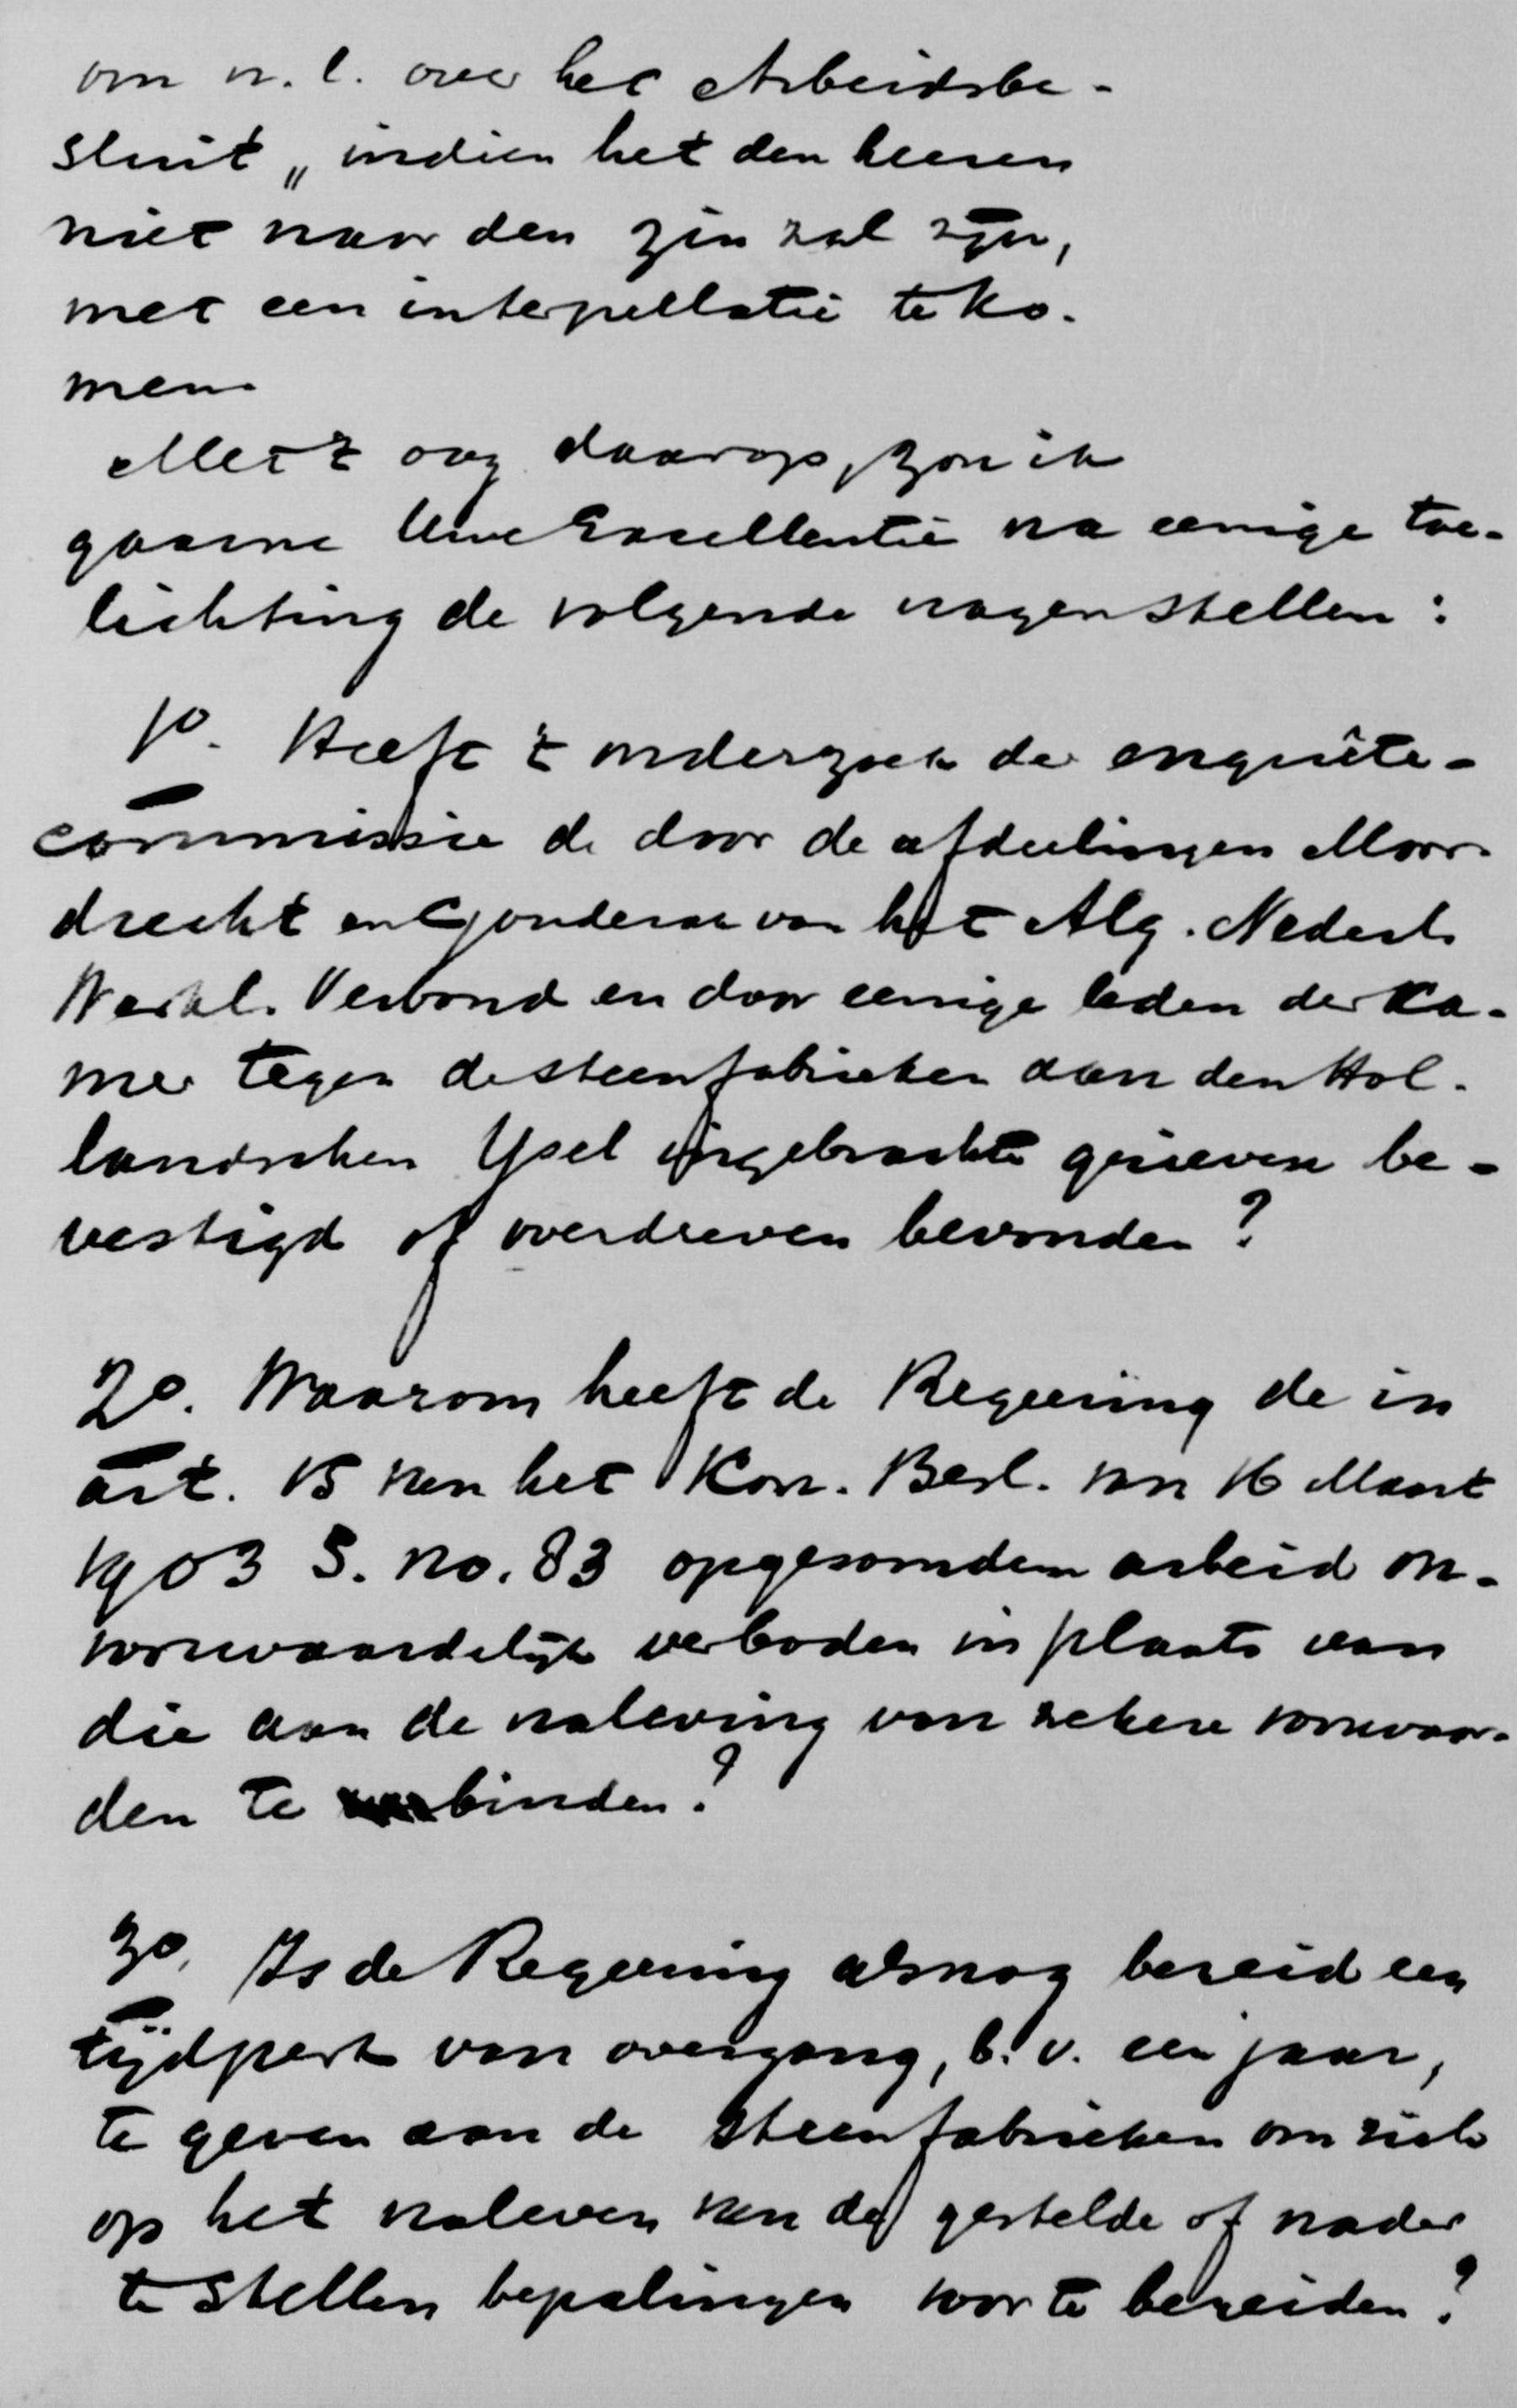 om n.l. over het Arbeidsbe-
sluit „indien het den heeren
niet naar den zin zal zijn,
met een interpellatie te ko-
men.
Met 't oog daarop, zou ik
gaarne Uwe Excellentie na eenige toe-
lichting de volgende vragen stellen:
1o. Heeft 't onderzoek der enquête-
commissie de door de afdeelingen Moor-
drecht en Gouderak van het Alg. Nederl.
Werkl. Verbond en door eenige leden der Ka-
mer tegen de steenfabrieken aan den Hol-
landschen IJsel ingebrachte grieven be-
vestigd of overdreven bevonden?
2o. Waarom heeft de Regeering de in
art. 15 van het Kon. Besl. van 16 Maart
1903 S. no. 83 opgesomden arbeid on-
voorwaardelijk verboden in plaats van
die aan de naleving van zekere voorwaar-
den te binden?
3o. Is de Regeering alsnog bereid een
tijdperk van overgang, b.v. een jaar,
te geven aan de steenfabrieken om zich
op het naleven van de gestelde of nader
te stellen bepalingen voor te bereiden?